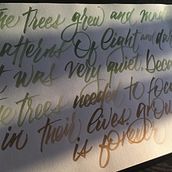 the trees grew and made
patterns of light and dark
it was very quiet. Because
the trees needed to focus
in their lives
is forever